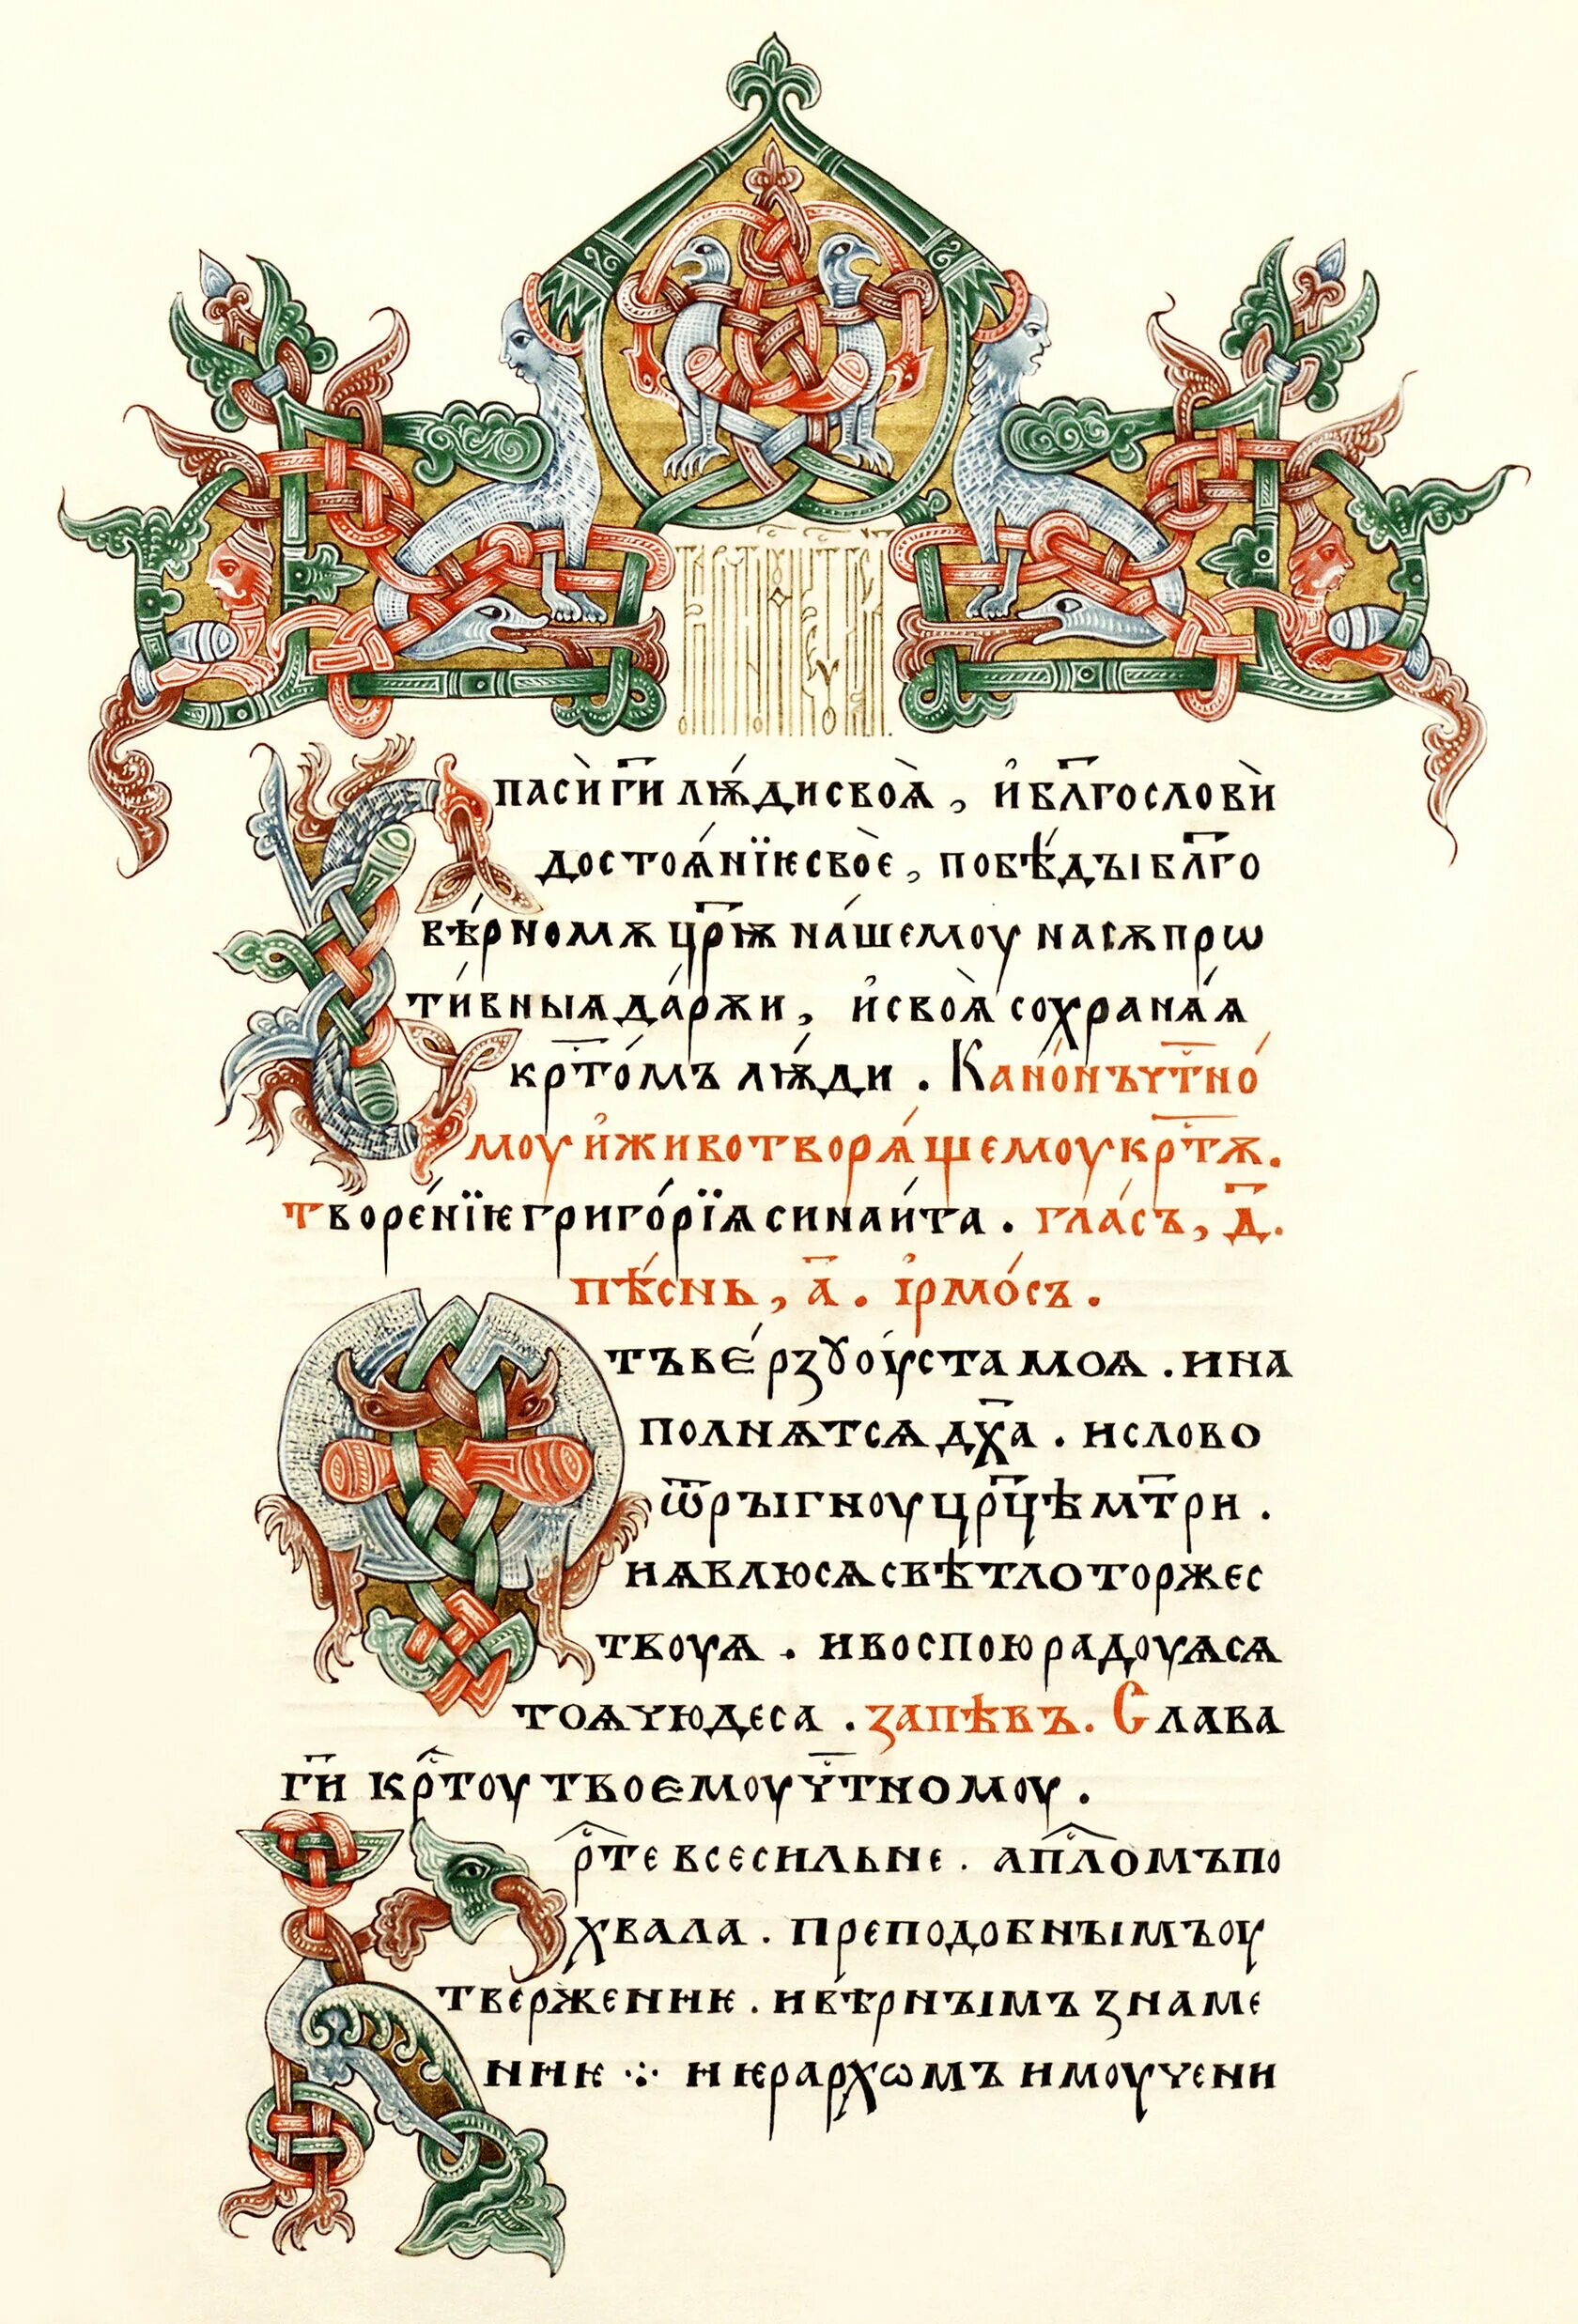 Спасѝ гⷭ҇и лѭ́ди своѧ̀, и҆ бл҃гословѝ
достоѧ́нїѥ своѐ, побѣ́ды бл҃го
вѣ́рномѫ цр҃ѭ на́шемоу на сѫпрѡ
ти́вныѧ да́рѫи, и҆ своѧ̀ сохранѧ́ѧ
крⷭ҇то́мъ лѭ́ди . Кано́нъ чⷭ҇тно́
моу и҆ животворѧ́щемоу крⷭ҇тѫ.
творе́нїѥ григо́рїѧ синаи́та . гла́съ, д҃.
пѣ́снь, а҃ . ірмо́съ .
Отъве́рзꙋ оуста моѧ . и на
полнѧтсѧ дх҃а . и слово
ѿрыгноу цр҃цѣ мт҃ри .
и ѧвлюсѧ свѣтло торжес
твоуѧ . и воспою радоуѧсѧ
тоѧ чюдеса . запѣвъ. Слава
гⷭ҇и крⷭ҇тоу твоемоу чⷭ҇тномоу .
Крⷭ҇те всесильне . апⷭ҇ломъ по
хвала . преподобнымъ оу
твержениѥ . и вѣрнымъ знаме
ниѥ ⁘ и ѥрархѡмъ и моучени